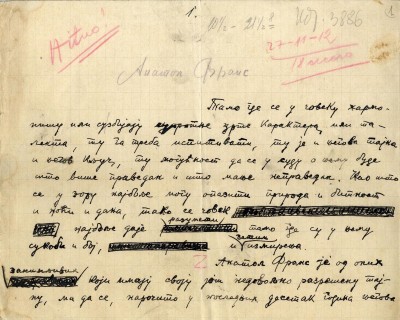 1.
Хитно!
10½ - 21½
Идј. 3886
1
27-11-12
Анатол Франс
Тамо где се у човеку хармо-
нишу или сузбијају супротне црте карактера, или та-
лента, ту га треба испитивати, ту је и његова тајка
и његов кључ, ту могућност да се у суду о њему буде
што више праведан и што мање неправедан. Као што
се у зору најбоље могу опазити природа и битност
и ноћи и дана, тако се човек
разумети
најбоље даје тамо где су у њему
сукоби и бој, и измирења.
Анатол Франс је од оних
занимљивих
који имају своју још недовољно разрешену тај-
ну, ма да се, нарочито у последњих десетак година његова